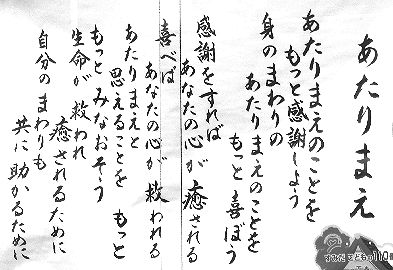 あたりまえ
あたりまえのことを
もっと感謝しよう
身のまわりの
あたりまえのことを
もっと喜ぼう
感謝をすれば
あなたの心が癒される
喜べば
あなたの心が救われる
あたりまえと
思えることを もっと
もっとみなおそう
生命が救われ
癒されるために
自分のまわりも
共に助かるために
すみだ こどもの110